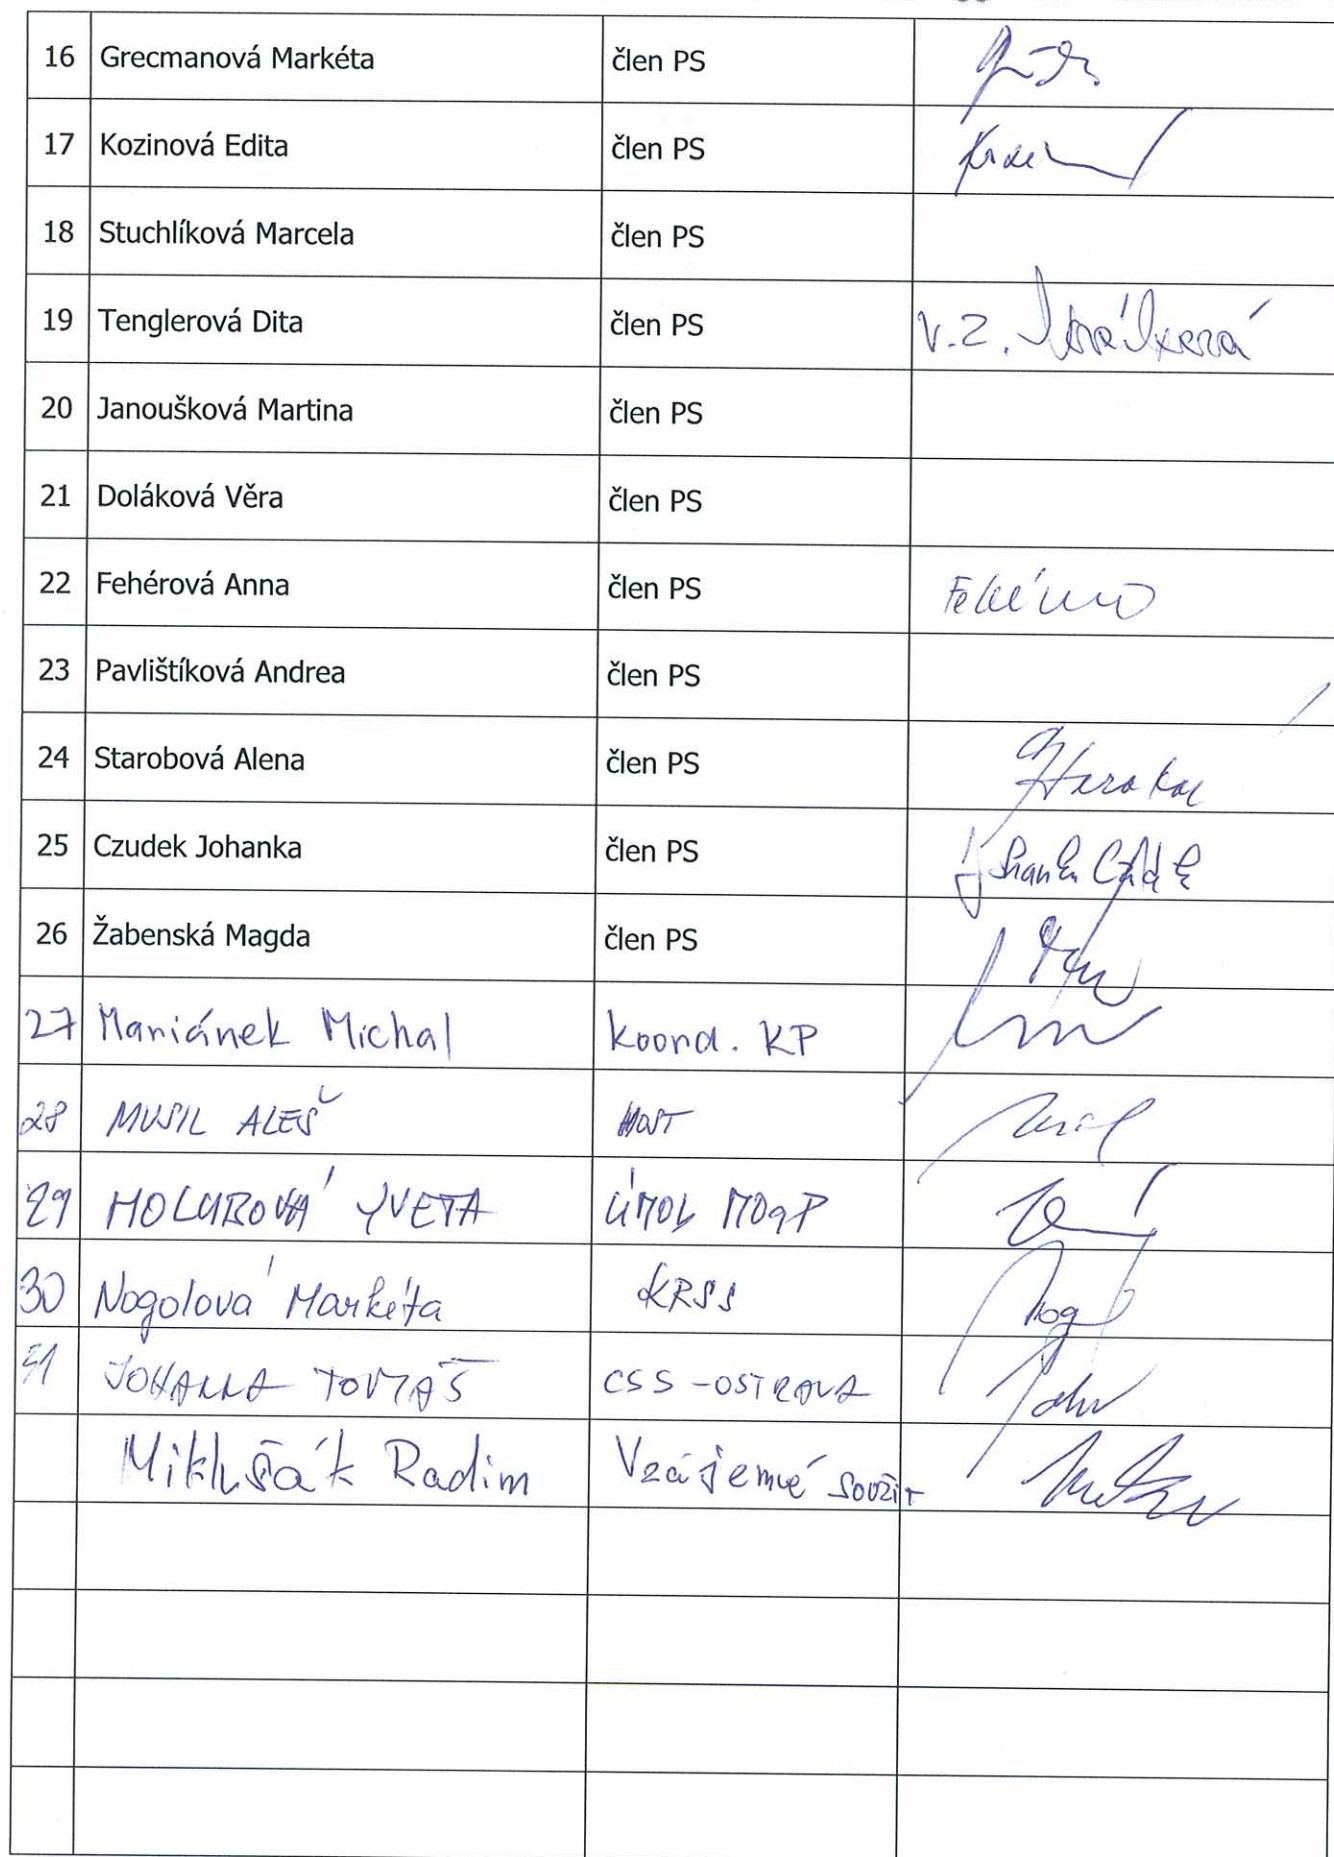 16 Grecmanová Markéta člen PS
17 Kozinová Edita člen PS
18 Stuchlíková Marcela člen PS
19 Tenglerová Dita člen PS V.Z.
20 Janoušková Martina člen PS
21 Doláková Věra člen PS
22 Fehérová Anna člen PS
23 Pavlištíková Andrea člen PS
24 Starobová Alena člen PS
25 Czudek Johanka člen PS
26 Žabenská Magda člen PS
27 Mariánek Michal koord. KP
28 MUSIL ALEŠ HOST
29 HOLUBOVÁ YVETA ÚMOb
30 Nogolová Markéta KRSS
31 JOHANNA TOMÁŠ CSS - OSTRAVA
Miklušák Radim Vzájemné soužit